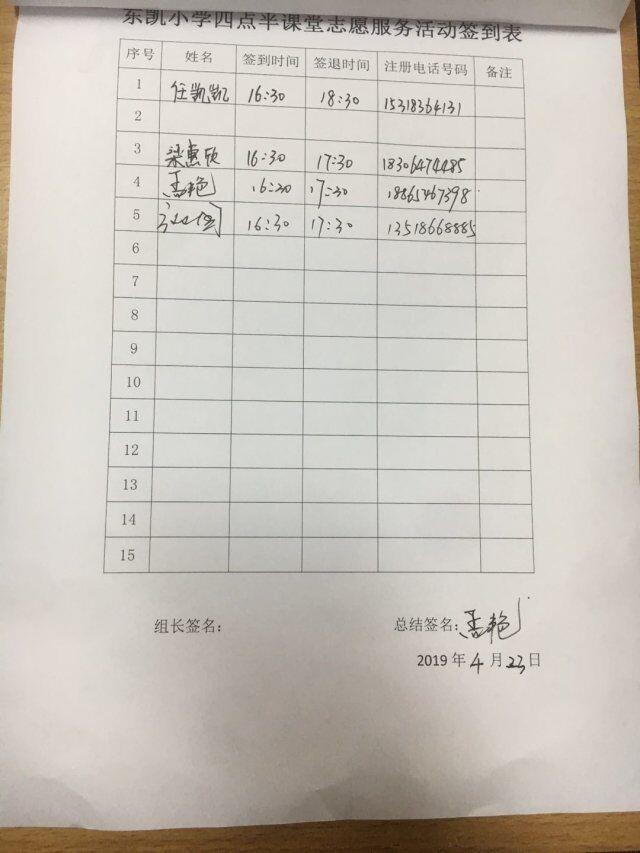 东凯小学四点半课堂志愿服务活动签到表
序号 姓名 签到时间 签退时间 注册电话号码 备注
1 任凯凯 16:30 18:30 15318364131
2
3 梁惠欣 16:30 17:30 18306474485
4 孟艳 16:30 17:30 18865467398
5 16:30 17:30 13518668885
6
7
8
9
10
11
12
13
14
15
组长签名: 总结签名: 孟艳
2019 年 4 月 23 日